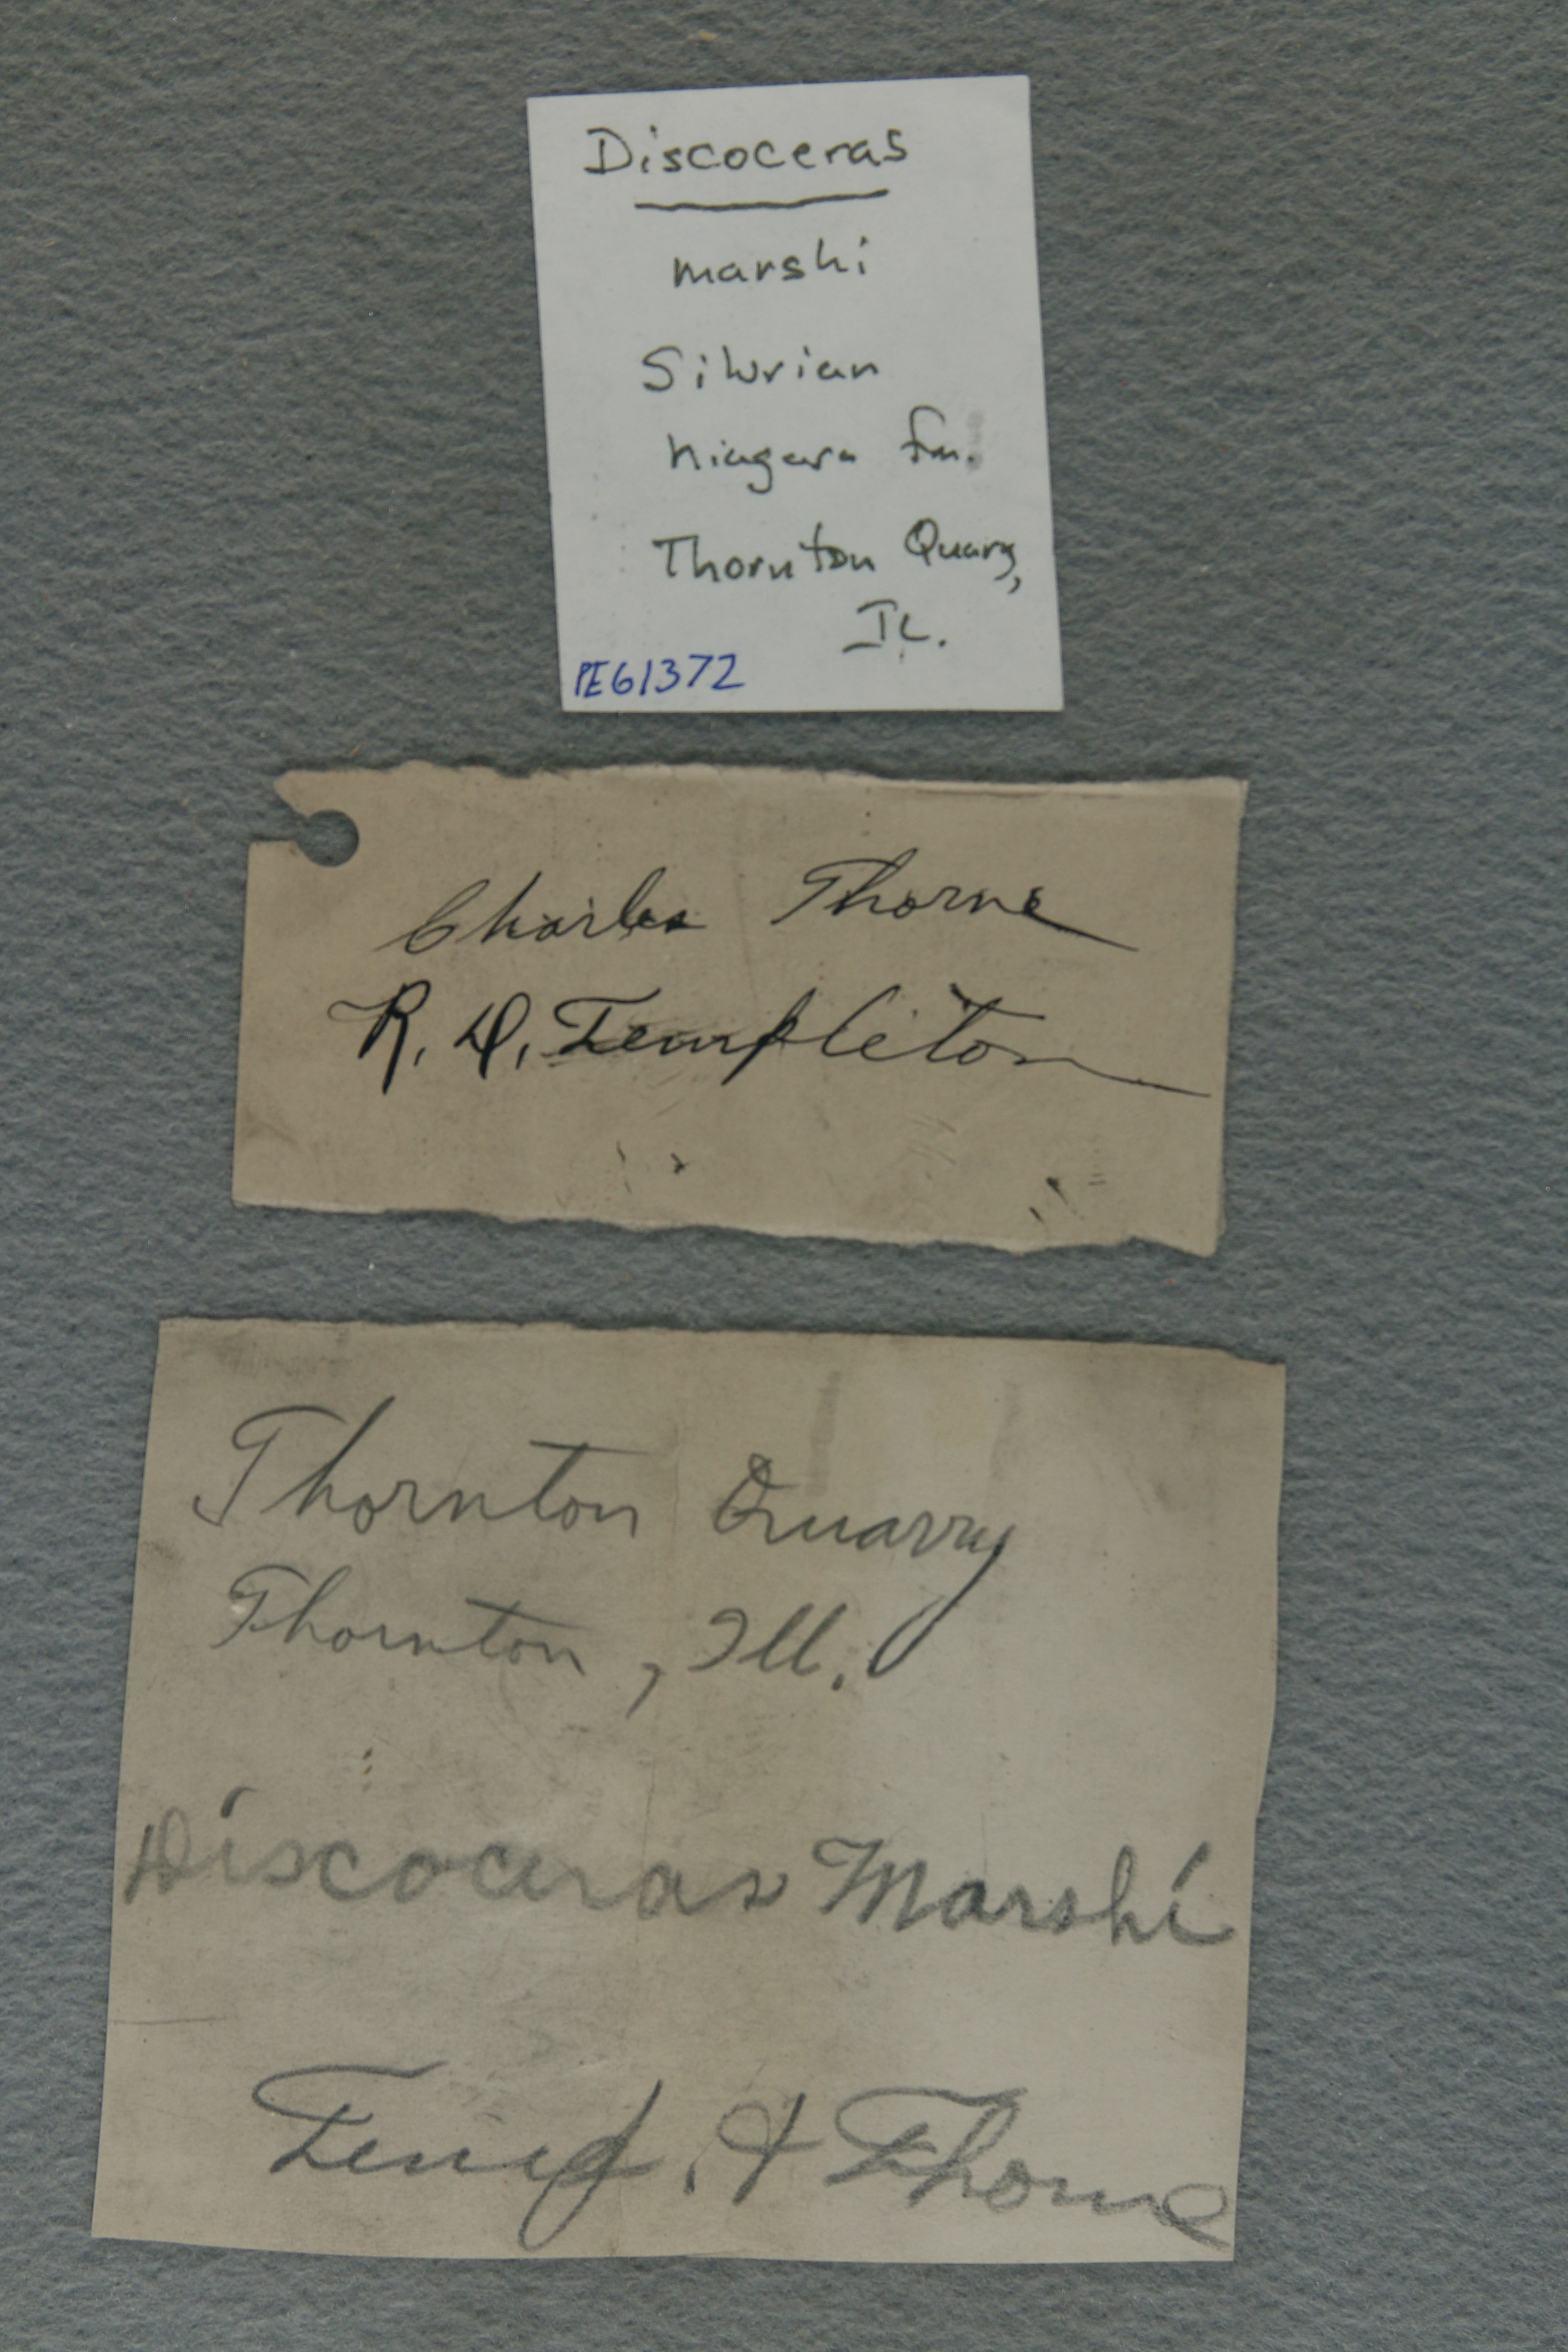 Discoceras
marshi
Silurian
Niagara Fm.
Thornton Quarry,
IL.
PE61372
Charles Thorne
R. D. Templeton
Thornton Quarry
Thornton, Ill.
Discoceras Marshi
Temp. & Thorne